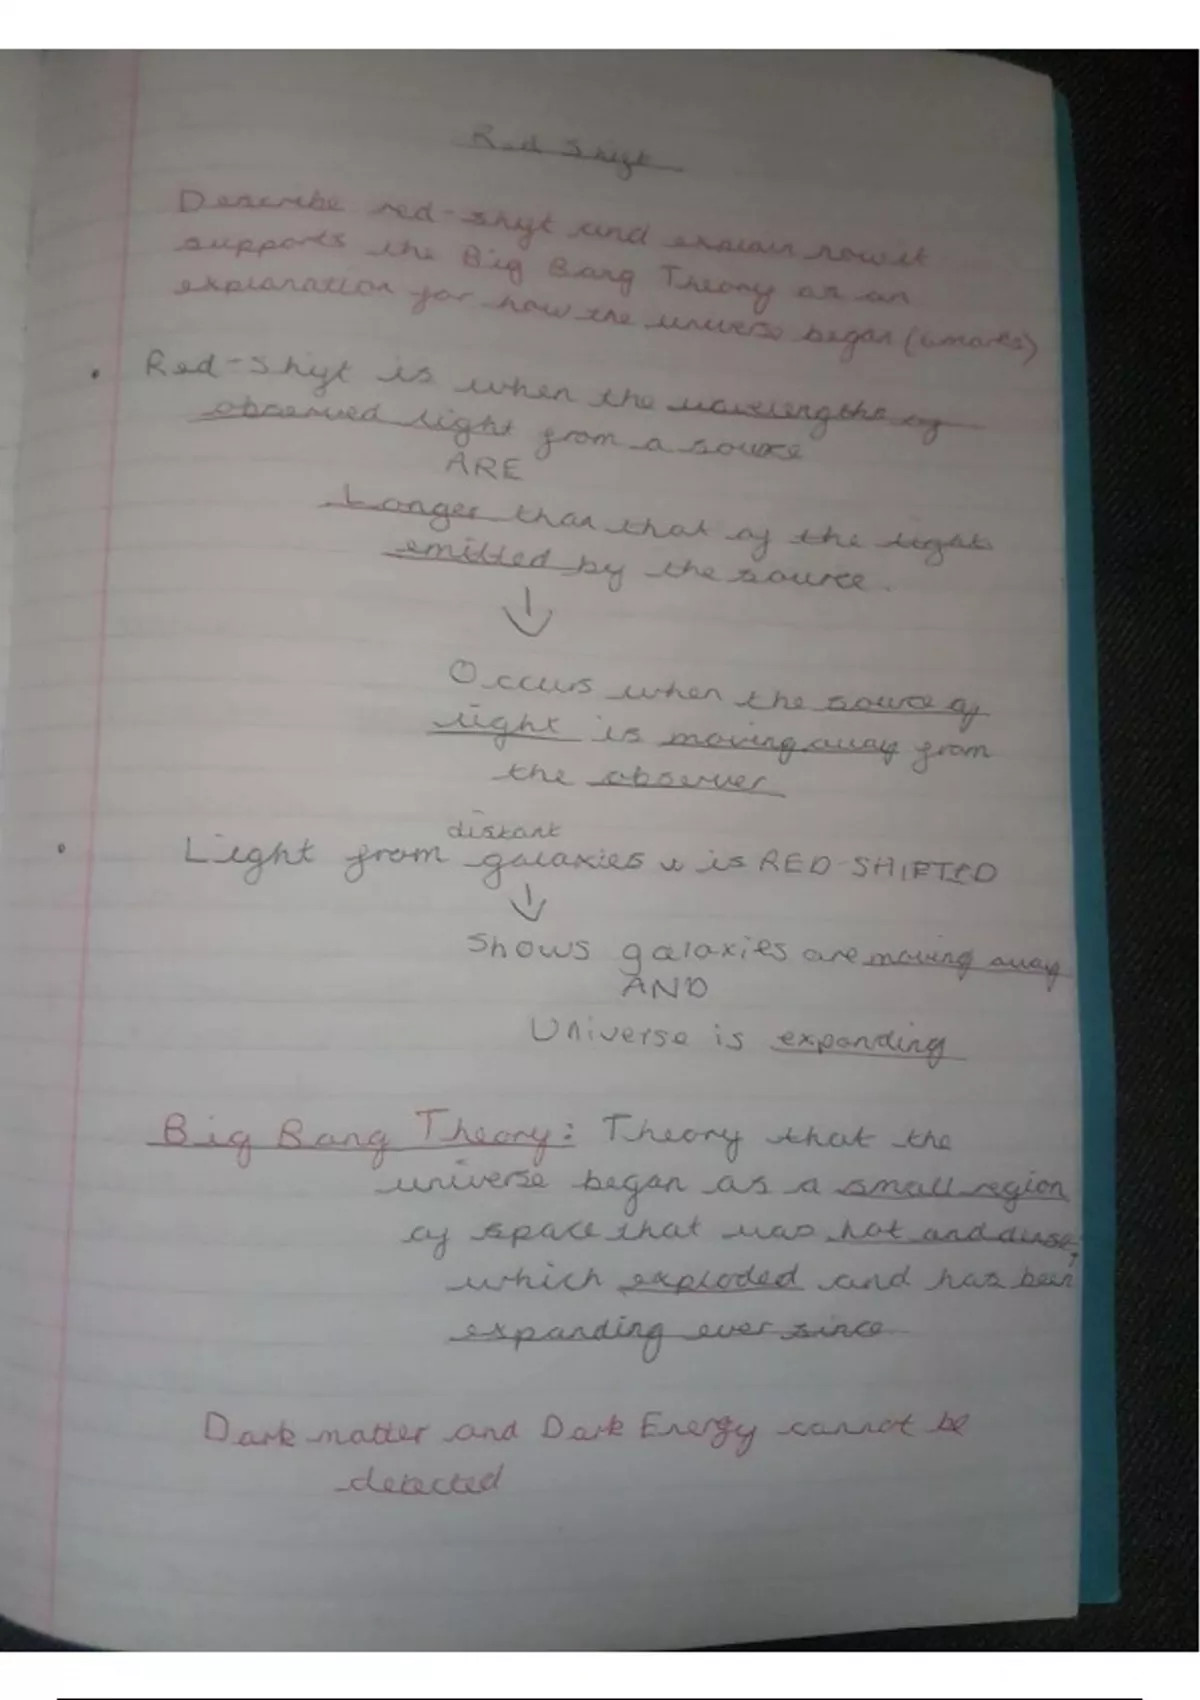 Red Shift
Describe red-shift and explain how it
supports the Big Bang Theory as an
explanation for how the universe began (6 marks)
• Red-Shift is when the wavelengths of
observed light from a source
ARE
Longer than that of the light
emitted by the source.
↓
Occurs when the source of
light is moving away from
the observer
distant
• Light from galaxies is RED-SHIFTED
↓
Shows galaxies are moving away
AND
Universe is expanding
Big Bang Theory: Theory that the
universe began as a small region
of space that was hot and dense,
which exploded and has been
expanding ever since
Dark matter and Dark Energy cannot be
detected